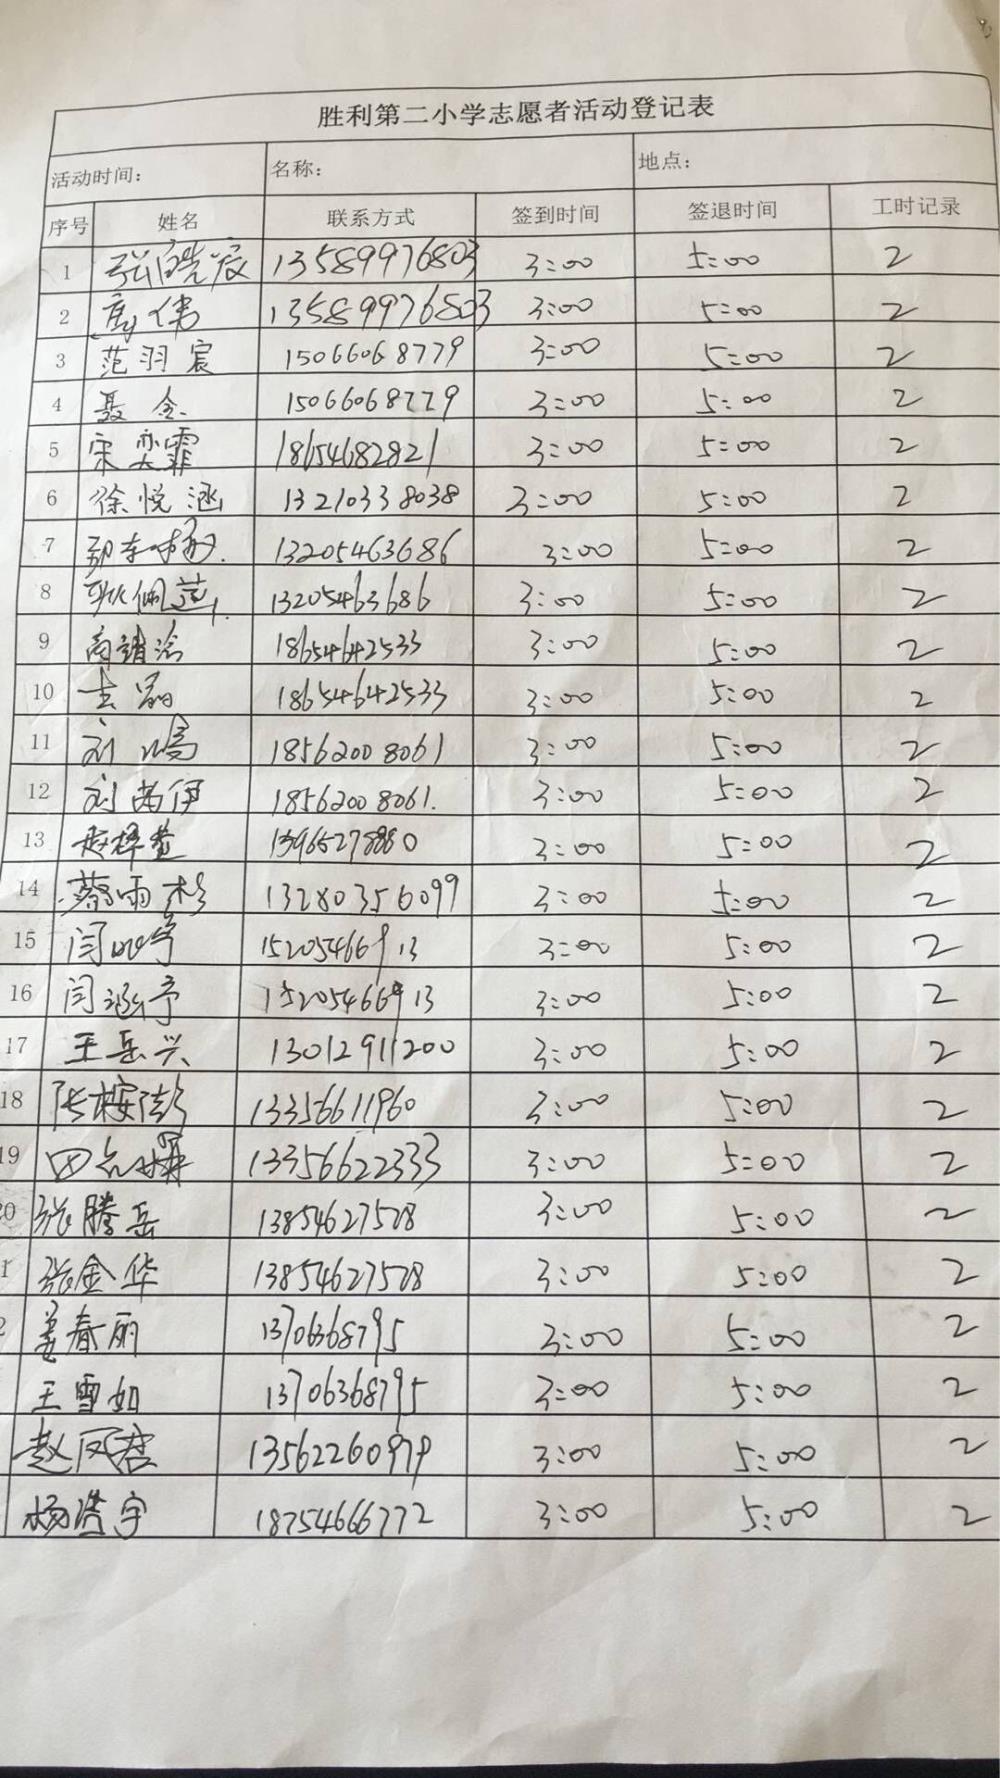 胜利第二小学志愿者活动登记表
活动时间： 名称： 地点：
序号 姓名 联系方式 签到时间 签退时间 工时记录
1 张皓宸 13589976803 3:00 5:00 2
2 高伟 13589976803 3:00 5:00 2
3 范羽宸 15066068779 3:00 5:00 2
4 聂令 15066068779 3:00 5:00 2
5 宋奕霏 18654682821 3:00 5:00 2
6 徐悦涵 13210338038 3:00 5:00 2
7 13205463686 3:00 5:00 2
8 13205463686 3:00 5:00 2
9 18654642533 3:00 5:00 2
10 18654642533 3:00 5:00 2
11 刘鸣 18562008061 3:00 5:00 2
12 刘芮伊 18562008061. 3:00 5:00 2
13 3:00 5:00 2
14 蔡雨杉 13280356099 3:00 5:00 2
15 闫 15205466913 3:00 5:00 2
16 闫涵予 15205466913 3:00 5:00 2
17 王岳兴 13012911200 3:00 5:00 2
18 张桉澎 13356611960 3:00 5:00 2
19 13356622333 3:00 5:00 2
20 张腾岳 13854627528 3:00 5:00 2
1 张金华 13854627528 3:00 5:00 2
2 姜春丽 13706368795 3:00 5:00 2
王雪如 13706368795 3:00 5:00 2
赵凤君 13562260979 3:00 5:00 2
杨浩宇 18754666772 3:00 5:00 2